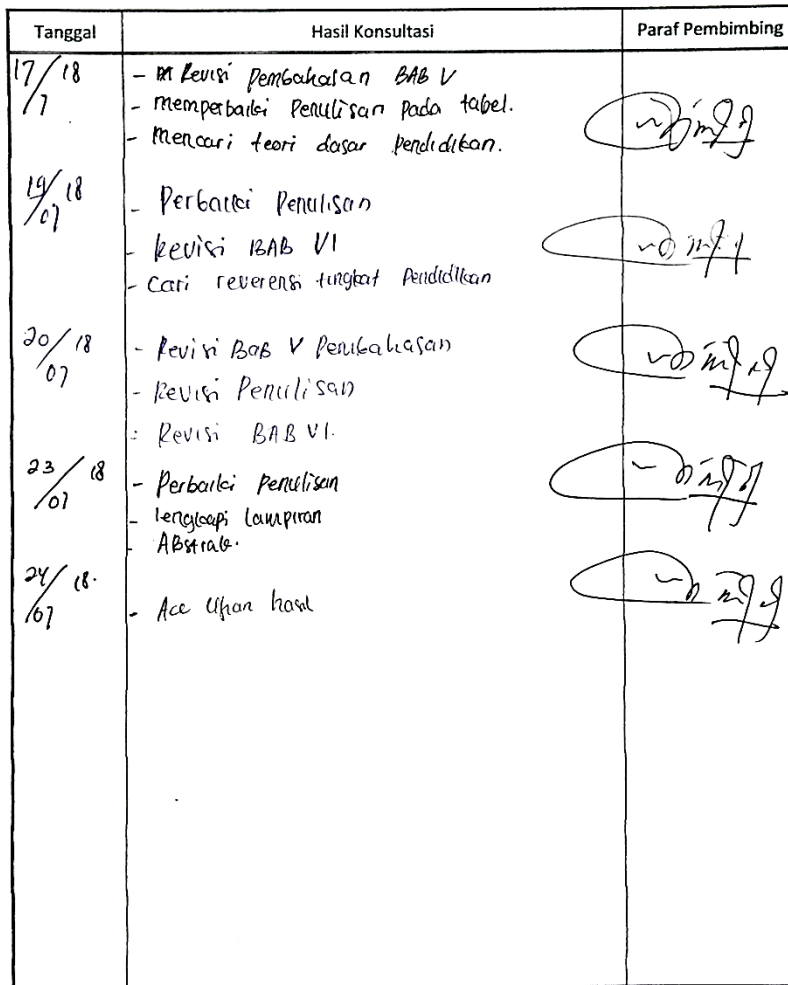 Tanggal Hasil Konsultasi Paraf Pembimbing
17/7 18 - Revisi Pembahasan BAB V
- memperbaiki Penulisan pada tabel.
- Mencari teori dasar Pendidikan.
19/07 18 - Perbaiki Penulisan
- Revisi BAB VI
- Cari reverensi tingkat Pendidikan
20/07 18 - Revisi BaB V Pembahasan
- Revisi Penulisan
- Revisi BAB VI.
23/07 18 - Perbaiki Penulisan
- lengkapi lampiran
- ABstrak.
24/07 18. - Acc Ujian hasil